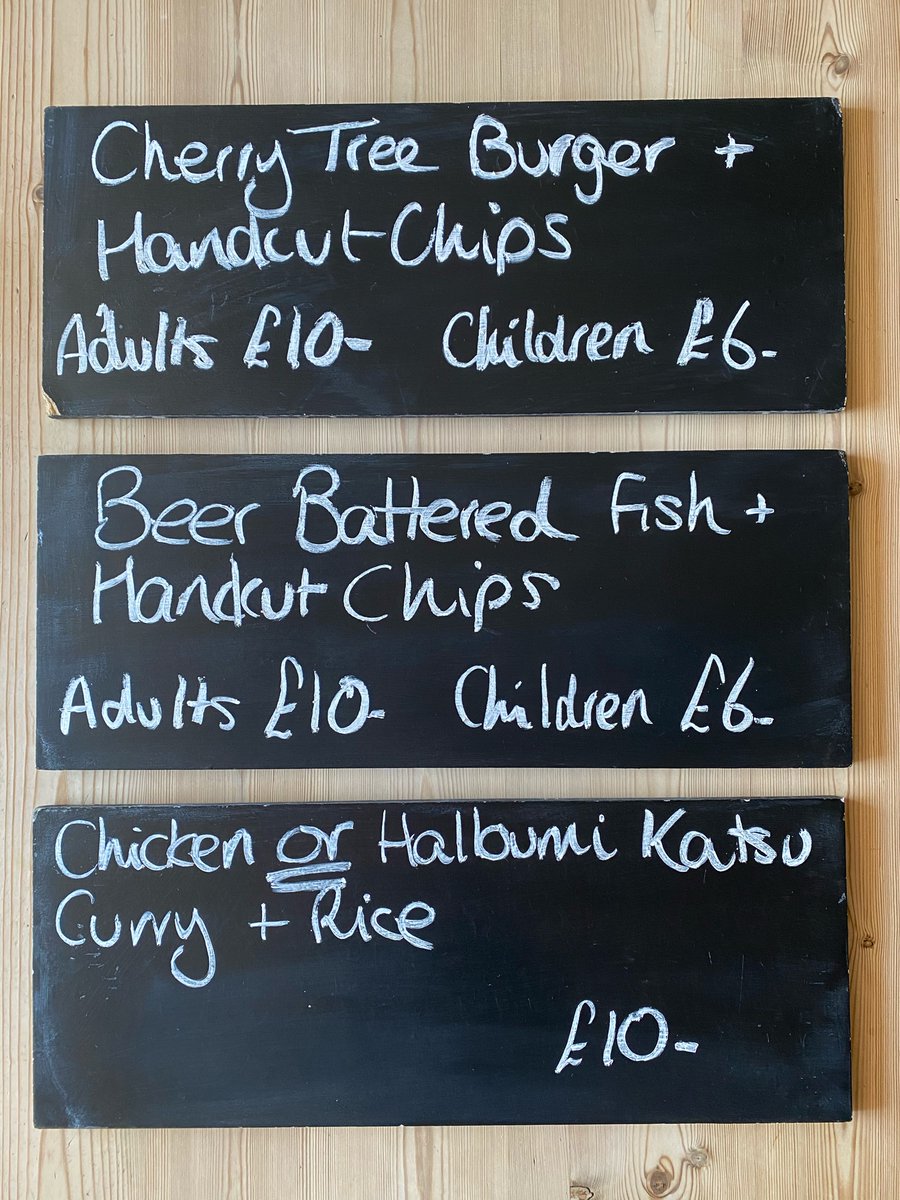 Cherry Tree Burger +
Handcut Chips
Adults £10- Children £6-
Beer Battered Fish +
Handcut Chips
Adults £10- Children £6-
Chicken or Halloumi Katsu
Curry + Rice
£10-